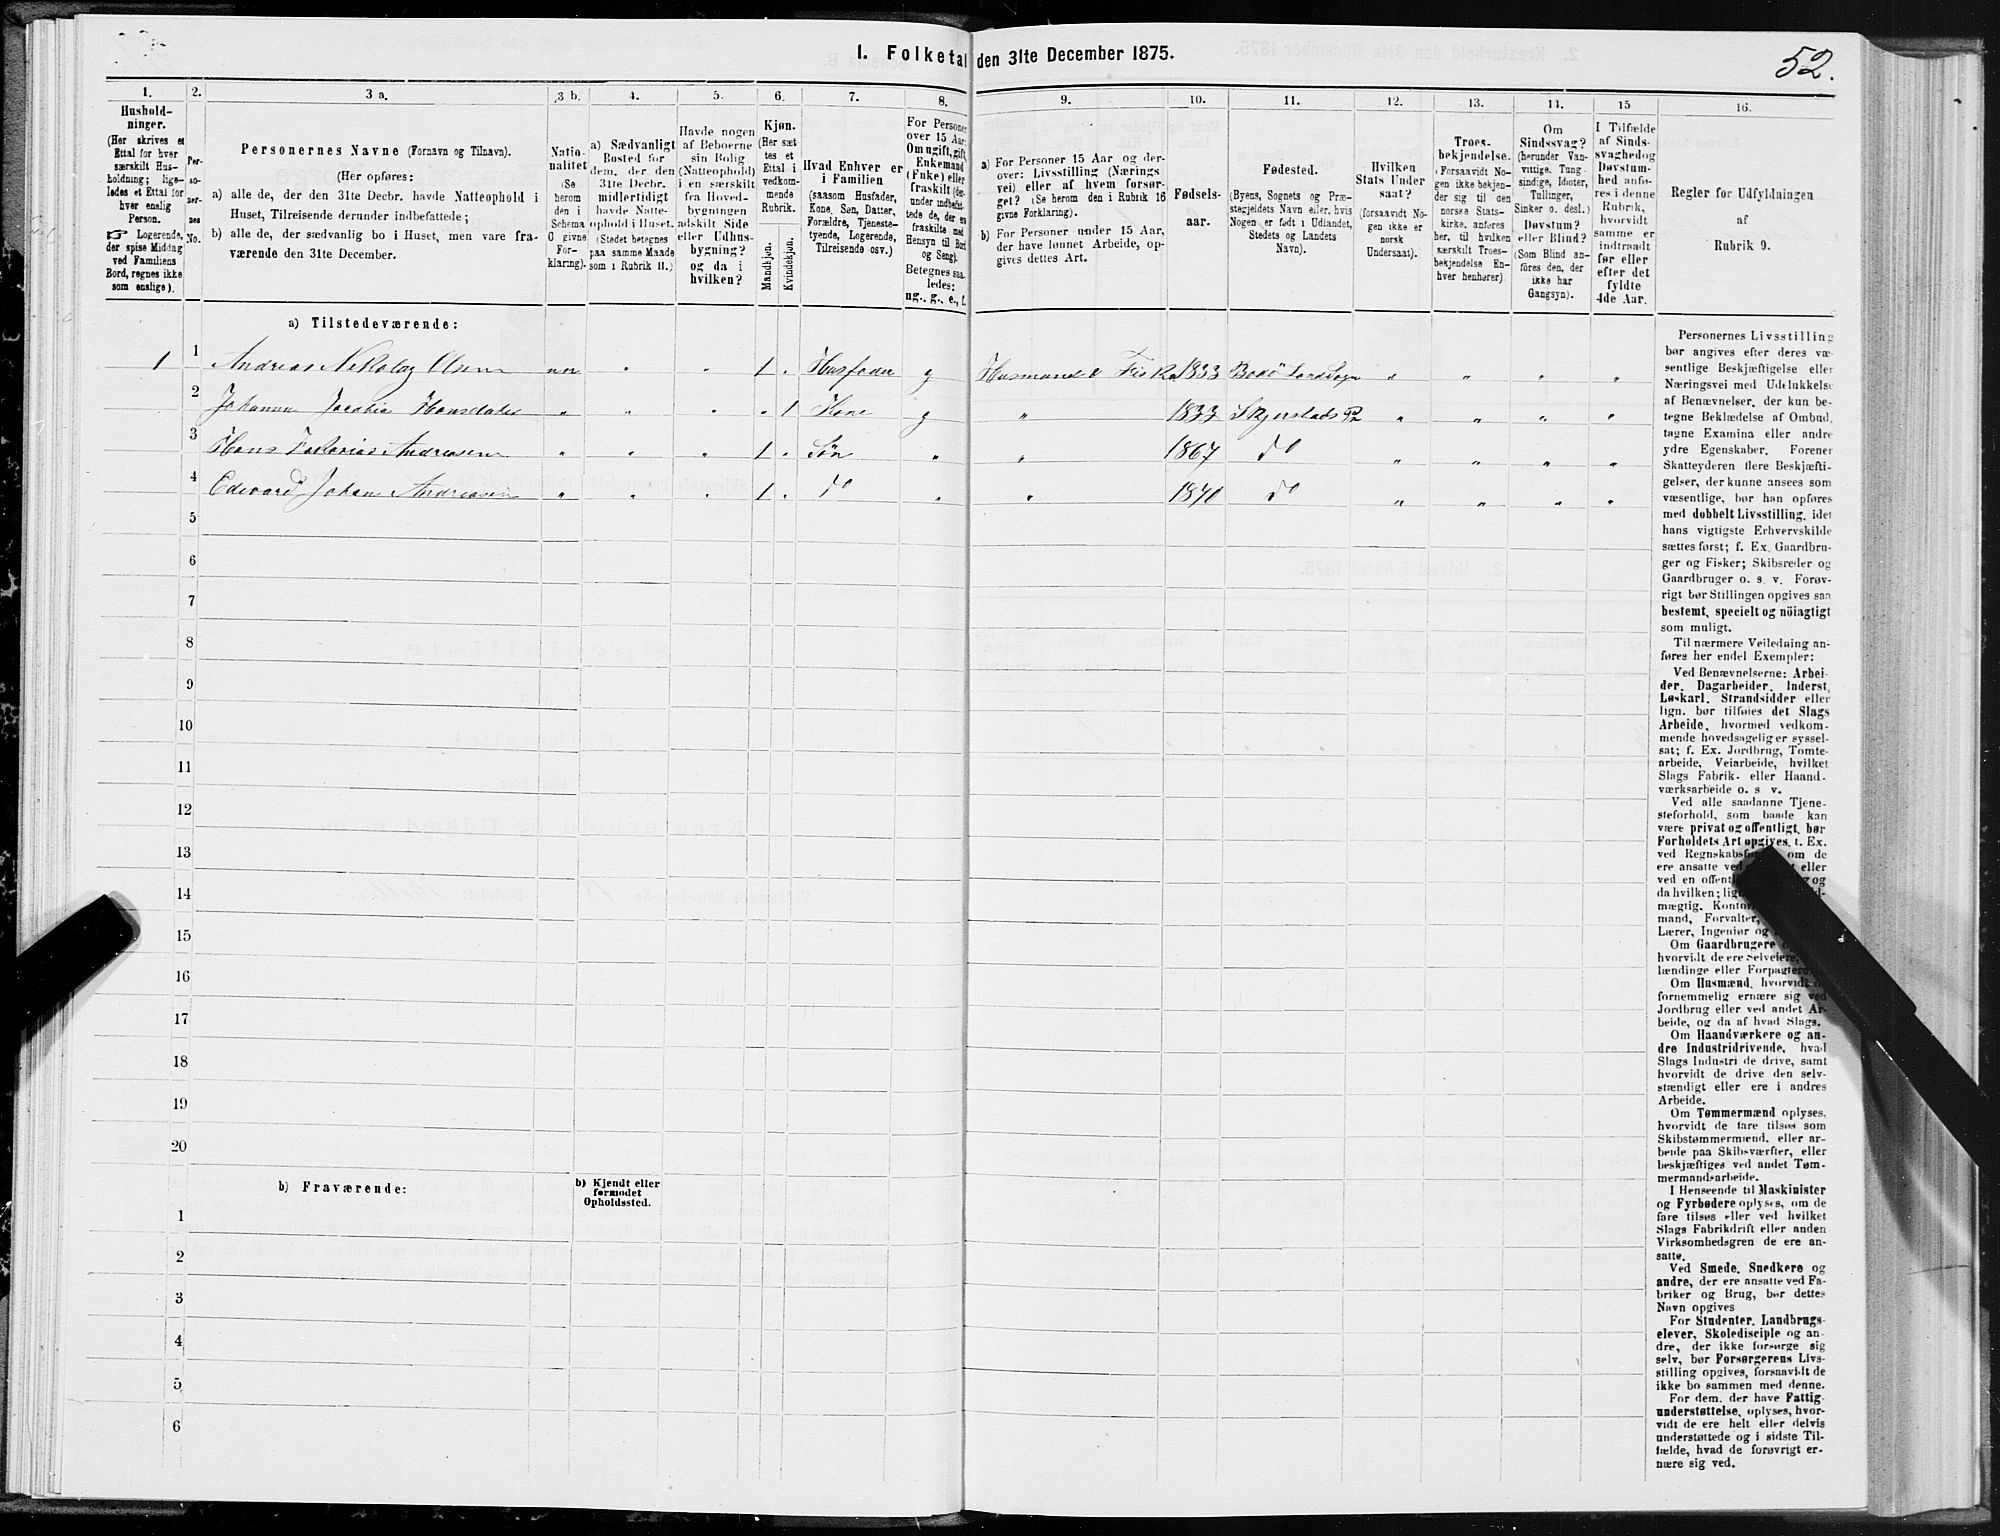 I. Folketal den 31te December 1875.
52.
1.
Hushold-
ninger.
(Her skrives et
Ettal for hver
særskilt Hus-
holdning; lige-
ledes et Ettal for
hver enslig
Person.
☞ Logerende,
der spise Middag
ved Familiens
Bord, regnes ikke
som enslige).
2.
Per-
so-
ner-
nes
No.
3 a.
Personernes Navne (Fornavn og Tilnavn).
(Her opføres:
a) alle de, der den 31te Decbr. havde Natteophold i
Huset, Tilreisende derunder indbefattede;
b) alle de, der sædvanlig bo i Huset, men vare fra-
værende den 31te December.
3 b.
Natio-
nalitet
(Se
herom
den i
Schema
G givne
For-
klaring).
4.
a) Sædvanligt
Bosted for
dem, der den
31te Decbr.
midlertidigt
havde Natte-
ophold i Huset.
(Stedet betegnes
paa samme Maade
som i Rubrik 11.)
5.
Havde nogen
af Beboerne
sin Bolig
(Natteophold)
i en særskilt
fra Hoved-
bygningen
adskilt Side
eller Udhus-
bygning?
og da i
hvilken?
6.
Kjøn.
(Her sæt
tes et
Ettal i
vedkom-
mende
Rubrik.
Mandkjøn.
Kvindekjøn.
7.
Hvad Enhver er
i Familien
(saasom Husfader,
Kone, Søn, Datter,
Forældre, Tjeneste-
tyende, Logerende,
Tilreisende osv.)
8.
For Personer
over 15 Aar:
Om ugift, gift,
Enkemand
(Enke) eller
fraskilt (der-
under indbefat-
tede de, der ere
fraskilte med
Hensyn til Bord
og Seng).
Betegnes saa-
ledes:
ug., g., e., f.
9.
a) For Personer 15 Aar og der-
over: Livsstilling (Nærings
vei) eller af hvem forsør-
get? (Se herom den i Rubrik 16
givne Forklaring).
b) For Personer under 15 Aar,
der have lønnet Arbeide, op-
gives dettes Art.
10.
Fødsels-
aar.
11.
Fødested.
(Byens, Sognets og Præ-
stegjeldets Navn eller, hvis
Nogen er født i Udlandet,
Stedets og Landets
Navn).
12.
Hvilken
Stats Under
saat?
(forsaavidt No-
gen ikke er
norsk
Undersaat).
13.
Troes-
bekjendelse.
(Forsaavidt No-
gen ikke bekjen-
der sig til den
norske Stats-
kirke, anføres
her, til hvilken
særskilt Troes-
bekjendelse En-
hver henhører).
14.
Om
Sindssvag?
(herunder Van-
vittige, Tung-
sindige, Idioter,
Tullinger,
Sinker o. desl.)
Døvstum?
eller Blind?
(Som Blind an-
føres den, der
ikke har
Gangsyn).
15
I Tilfælde
af Sinds-
svaghed og
Døvstum-
hed anfø-
res i denne
Rubrik,
hvorvidt
samme er
indtraadt
før eller
efter det
fyldte
4de Aar.
16.
Regler for Udfyldningen
af
Rubrik 9.
a) Tilstedeværende:
1 1 Andreas Nikolay Olsen nn " " 1 " Husfader g Husmand & Fisker 1833 Bodø Landsogn " " " "
2 Johanna Jacobia Hansdatter " " " " 1 Kone g " 1833 Skjerstads P. " " " "
3 Hans Andreasen " " " 1 " Søn " " 1867 do " " " "
4 Edevard Johan Andreasen " " " 1 " do " " 1870 do " " " "
5
6
7
8
9
10
11
12
13
14
15
16
17
18
19
20
b) Fraværende:
b) Kjendt eller
formodet
Opholdssted.
1
2
3
4
5
6
Personernes Livsstilling
bør angives efter deres væ-
sentlige Beskjæftigelse eller
Næringsvei med Udelukkelse
af Benævnelser, der kun be-
tegne Beklædelse af Ombud,
tagne Examina eller andre
ydre Egenskaber. Forener
Skatteyderen flere Beskjæfti-
gelser, der kunne ansees som
væsentlige, bør han opføres
med dobbelt Livsstilling, idet
hans vigtigste Erhvervskilde
sættes først; f. Ex. Gaardbru-
ger og Fisker; Skibsreder og
Gaardbruger o. s. v. Forøv-
rigt bør Stillingen opgives saa
bestemt, specielt og nøiagtigt
som muligt.
Til nærmere Veiledning an-
føres her endel Exempler:
Ved Benævnelserne: Arbei-
der, Dagarbeider, Inderst,
Løskarl, Strandsidder eller
lign. bør tilføies det Slags
Arbeide, hvormed vedkom-
mende hovedsagelig er syssel-
sat; f. Ex. Jordbrug, Tomte-
arbeide, Veiarbeide, hvilket
Slags Fabrik- eller Haand-
værksarbeide o. s. v.
Ved alle saadanne Tjene-
steforhold, som baade kan
være privat og offentligt, bør
Forholdets Art opgives, t. Ex.
ved om de
ere ansatte ved eller
ved en og
da hvilken;
mægtig,
mand, Forvalter,
Lærer, Ingeniør og
Om Gaardbrugere
hvorvidt de ere Selveiere,
lændinge eller Forpagtere,
Om Husmænd, hvorvidt
fornemmelig ernære sig ved
Jordbrug eller ved andet Ar-
beide, og da af hvad Slags.
Om Haandværkere og an-
dre Industridrivende, hvad
Slags Industri de drive, samt
hvorvidt de drive den selv-
stændigt eller ere i andres
Arbeide.
Om Tømmermænd oplyses,
hvorvidt de fare tilsøs som
Skibstømmermænd, eller ar-
beide paa Skibsværfter, eller
beskjæftiges ved andet Tøm-
mermandsarbeide.
I Henseende til Maskinister
og Fyrbødere oplyses, om de
fare tilsøs eller ved hvilket
Slags Fabrikdrift eller anden
Virksomhedsgren de ere an-
satte.
Ved Smede, Snedkere og
andre, der ere ansatte ved Fa-
briker og Brug, bør dettes
Navn opgives
For Studenter, Landbrugs-
elever, Skoledisciple og an-
dre, der ikke forsørge sig
selv, bør Forsørgerens Livs-
stilling opgives, forsaavidt de
ikke bo sammen med denne.
For dem, der have Fattig-
understøttelse, oplyses, hvor-
vidt de ere helt eller delvis
understøttede og i sidste Til-
fælde, hvad de forøvrigt er-
nære sig ved.